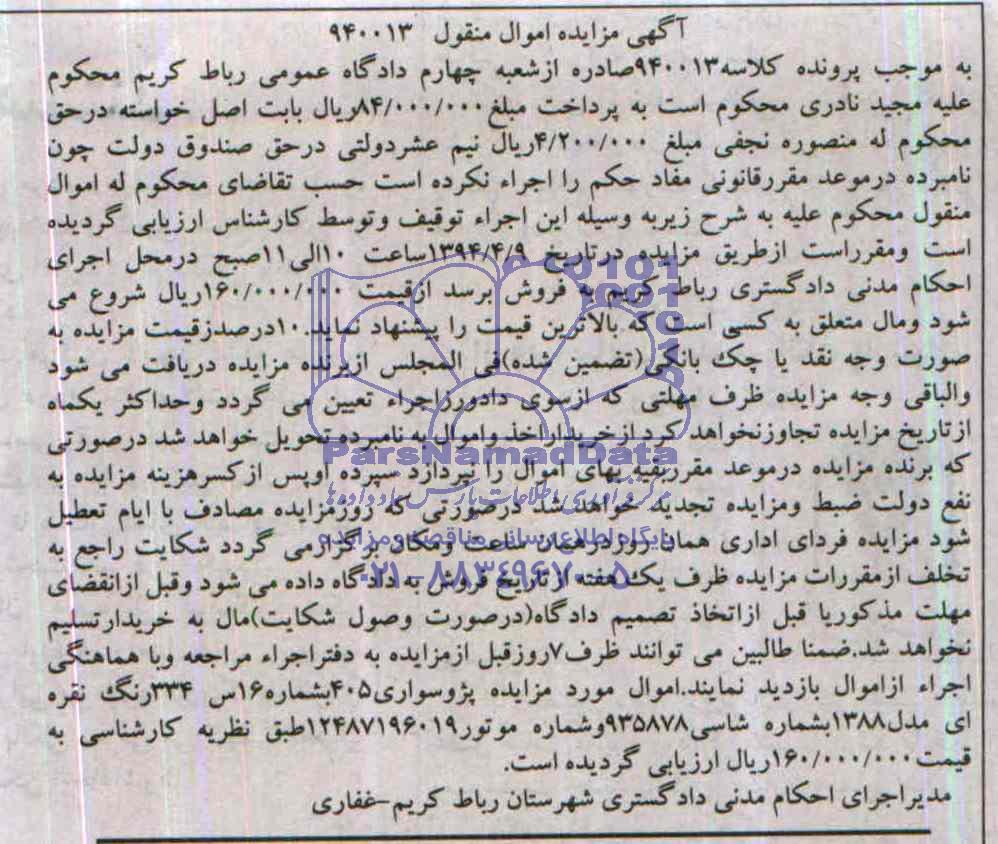 آگهی مزایده اموال منقول ۹۴۰۰۱۳
به موجب پرونده کلاسه۹۴۰۰۱۳صادره ازشعبه چهارم دادگاه عمومی رباط کریم محکوم
علیه مجید نادری محکوم است به پرداخت مبلغ۸۴/۰۰۰/۰۰۰ریال بابت اصل خواسته درحق
محکوم له منصوره نجفی مبلغ ۴/۲۰۰/۰۰۰ریال نیم عشردولتی درحق صندوق دولت چون
نامبرده درموعد مقررقانونی مفاد حکم را اجراء نکرده است حسب تقاضای محکوم له اموال
منقول محکوم علیه به شرح زیربه وسیله این اجراء توقیف وتوسط کارشناس ارزیابی گردیده
است ومقرراست ازطریق مزایده درتاریخ ۱۳۹۴/۴/۹ساعت ۱۰الی۱۱صبح درمحل اجرای
احکام مدنی دادگستری رباط کریم به فروش برسد ازقیمت ۱۶۰/۰۰۰/۰۰۰ریال شروع می
شود ومال متعلق به کسی است که بالاترین قیمت را پیشنهاد نماید.۱۰درصدزقیمت مزایده به
صورت وجه نقد یا چک بانکی(تضمین شده)فی المجلس ازبرنده مزایده دریافت می شود
والباقی وجه مزایده ظرف مهلتی که ازسوی دادورزاجراء تعیین می گردد وحداکثر یکماه
ازتاریخ مزایده تجاوزنخواهد کرد ازخریداراخذ واموال به نامبرده تحویل خواهد شد درصورتی
که برنده مزایده درموعد مقرربقیه بهای اموال را نپردازد سپرده اوپس ازکسرهزینه مزایده به
نفع دولت ضبط ومزایده تجدید خواهد شد درصورتی که روزمزایده مصادف با ایام تعطیل
شود مزایده فردای اداری همان روزدرهمان ساعت ومکان برگزارمی گردد شکایت راجع به
تخلف ازمقررات مزایده ظرف یک هفته از تاریخ فروش به دادگاه داده می شود وقبل ازانقضای
مهلت مذکوریا قبل ازاتخاذ تصمیم دادگاه(درصورت وصول شکایت)مال به خریدارتسلیم
نخواهد شد.ضمنا طالبین می توانند ظرف۷روزقبل ازمزایده به دفتراجراء مراجعه وبا هماهنگی
اجراء ازاموال بازدید نمایند.اموال مورد مزایده پژوسواری۴۰۵بشماره۱۶س ۳۳۴رنگ نقره
ای مدل۱۳۸۸بشماره شاسی۹۳۵۸۷۸وشماره موتور۱۲۴۸۷۱۹۶۰۱۹طبق نظریه کارشناسی به
قیمت۱۶۰/۰۰۰/۰۰۰ریال ارزیابی گردیده است.
مدیراجرای احکام مدنی دادگستری شهرستان رباط کریم-غفاری
ParsNamadData
مرکز فرآوری اطلاعات پارس نماد داده‌ها
پایگاه اطلاع رسانی مناقصه و مزایده
۰۲۱-۸۸۳۴۹۶۷۰-۵